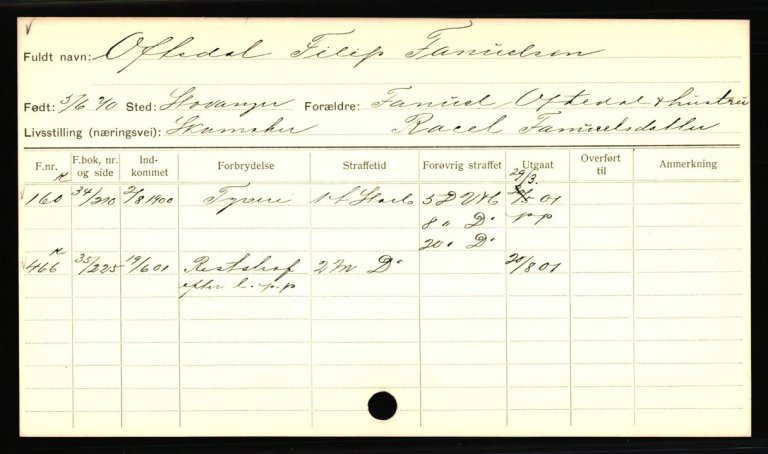 Fuldt navn: Oftedal Filip Fanuelsen
Født: 5/6 70 Sted: Stavanger Forældre: Fanuel Oftedal & hustru
Livsstilling (næringsvei): Skomaker Racel Fanuelsdatter
F.nr. F.bok, nr. og side Ind- kommet Forbrydelse Straffetid Forøvrig straffet Utgaat Overført til Anmerkning
29/3.
160 34/210 2/8 1900 Tyveri Straf. 5 D V&B 01
8 " Do p p
20 " Do
466 35/225 19/6 01 Reststraf 2 M Do 20/8 01
efter l. p. p